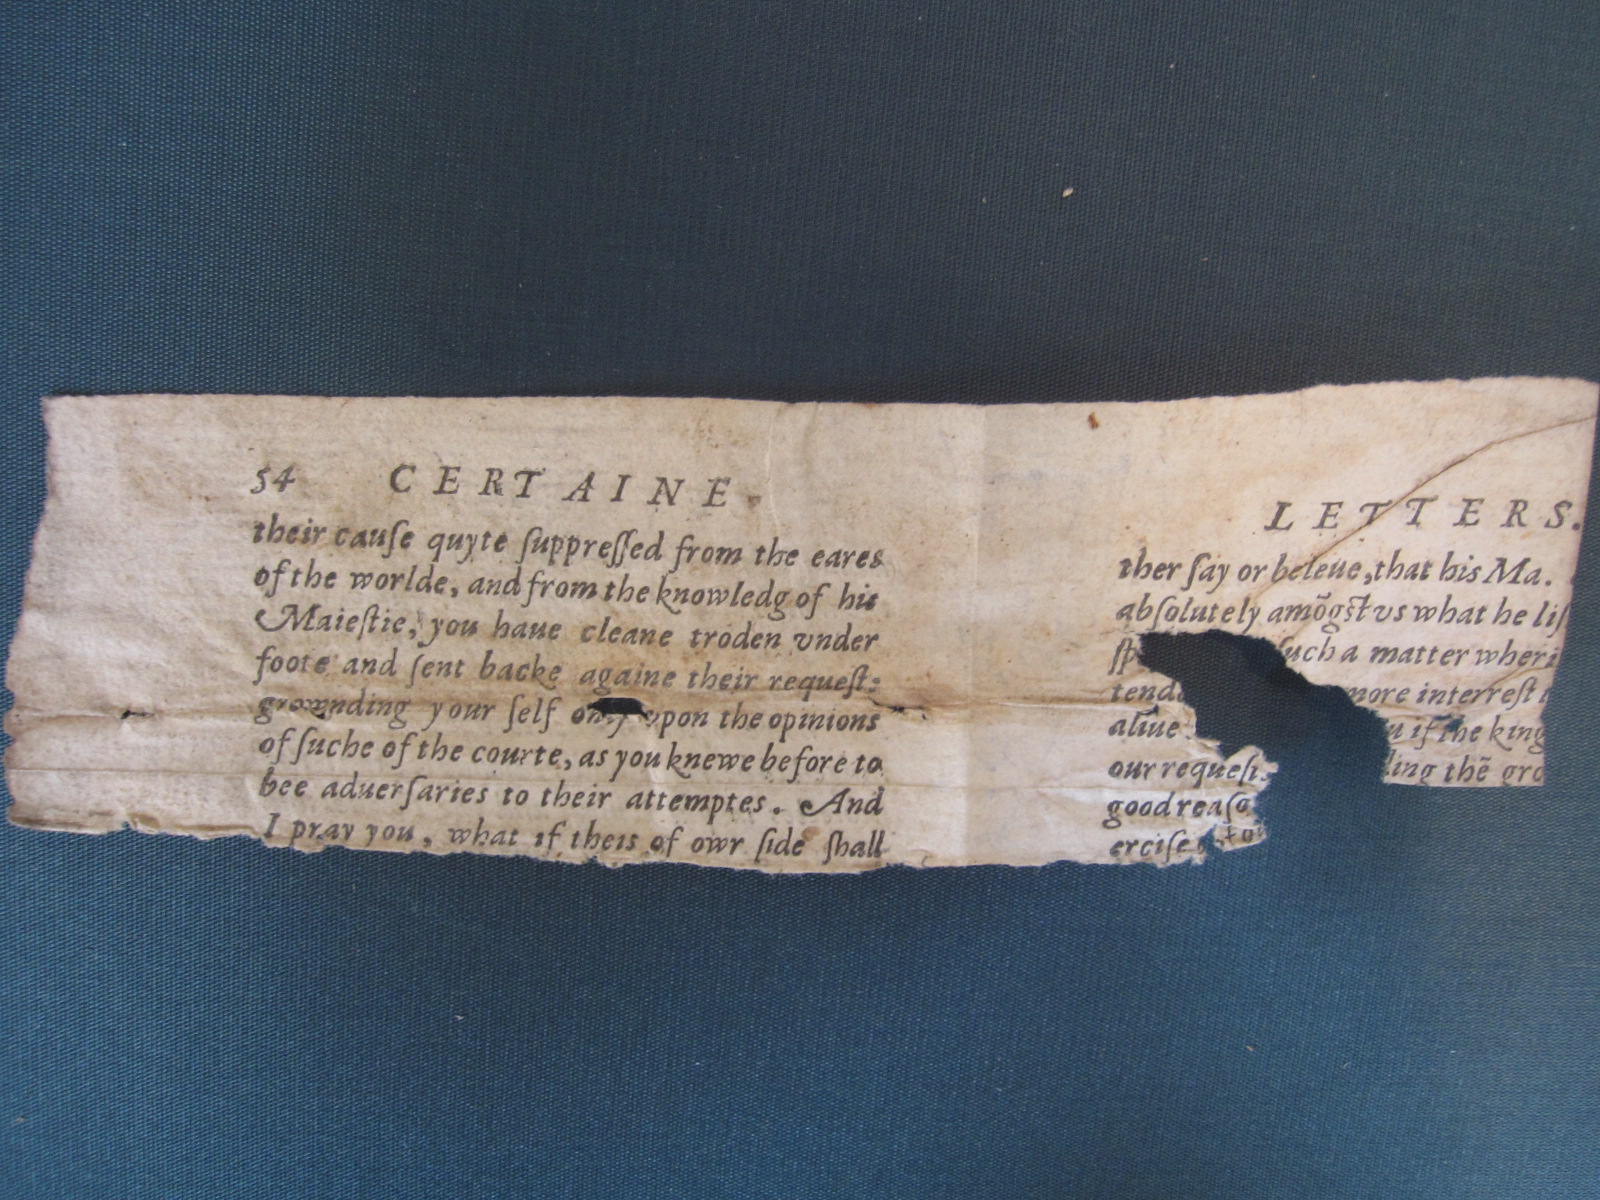 54 CERTAINE
their cauſe quyte ſuppreſſed from the eares
of the worlde, and from the knowledg of his
Maieſtie, you haue cleane troden vnder
foote and ſent backe againe their requeſt:
grownding your ſelf only vpon the opinions
of ſuche of the courte, as you knewe before to
bee aduerſaries to their attemptes. And
I pray you, what if theis of owr ſide ſhall
LETTERS.
ther ſay or beleue, that his Ma.
abſolutely amõgſt vs what he liſ
ſp ſuch a matter wheri
tend more interreſt
aliue if the king
our requeſt ling thẽ gro
good reaſo
erciſe